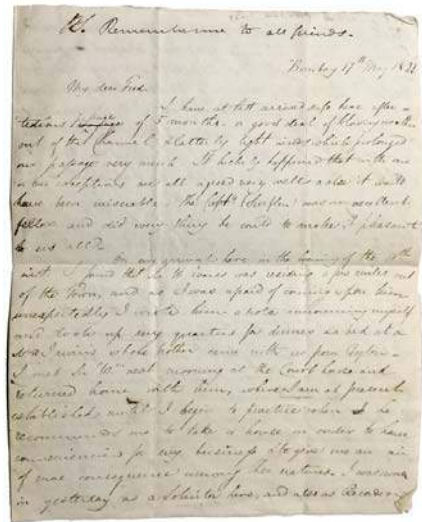 P.S. Remember me to all friends.
Bombay 17th May 18
My dear Fred
I have at last arrived safe here after a
tedious of 5 months. a good deal of blowing weather
out of the Channel & latterly light winds which prolonged
our passage very much. It luckily happened that with one
or two exceptions we all agreed very well or else it would
have been miserable. The Capt was an excellent
fellow and did every thing he could to make it pleasant
to us all.
On our arrival here in the evening of the 10th
inst I found that Sir W was residing a few miles out
of the Town, and as I was afraid of coming upon him
unexpectedly I wrote him a note announcing myself
and took up my quarters for dinner and bed at a
whose brother came with us from Ceylon.
I met Sir Wm next morning at the Court house and
returned home with them, where I am at present
established, until I begin to practice when he
recommends me to take a house in order to have
conveniences for my business & to give me an air
of more consequence among the natives. I was sworn
in yesterday as a Solicitor here, and also as